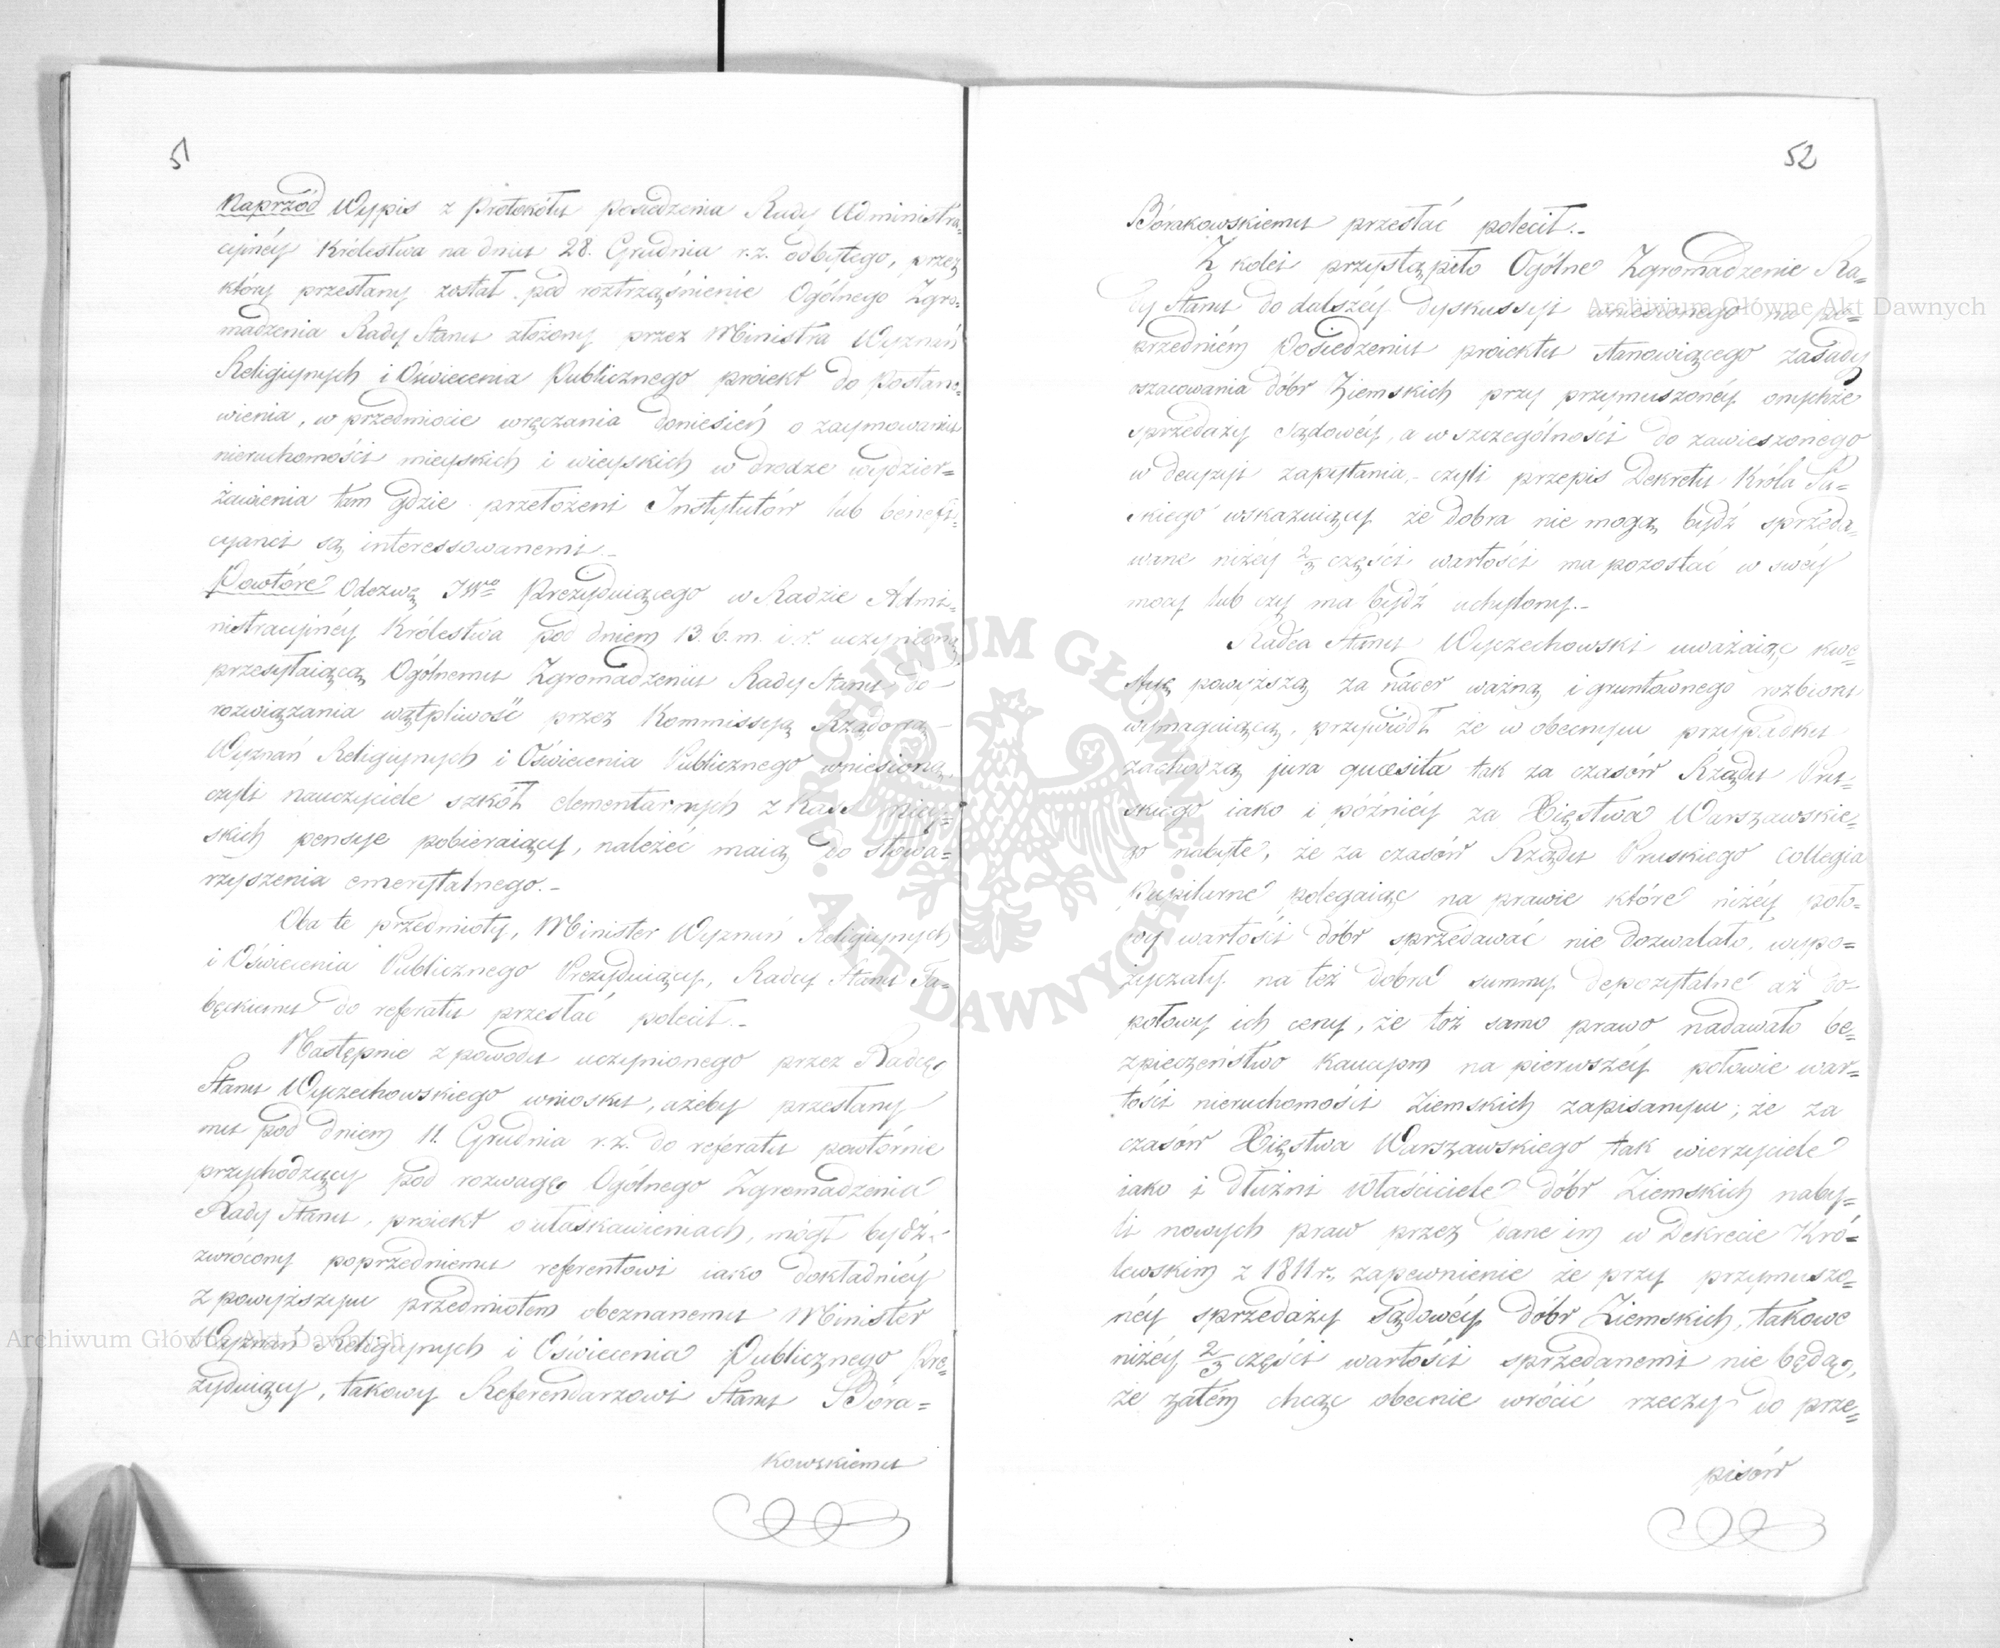 51
Naprzód Wypis z Protokółu posiedzenia Rady Administra-
cyinéy Królestwa na dniu 28. Grudnia r.z. odbytego, przez
który przesłany został pod roztrząśnienie Ogólnego Zgro-
madzenia Rady Stanu złożony przez Ministra Wyznań
Religiynych i Oświecenia Publicznego proiekt do Postano-
wienia, w przedmiocie wręczania doniesień o zaymowaniu
nieruchomości mieyskich i wieyskich w drodze wydzier-
żawienia tam gdzie przełożeni Instytutów lub benefi-
cyanci są interessowanemi.-
Powtóre Odezwę JWgo Prezyduiącego w Radzie Admi-
nistracyinéy Królestwa pod dniem 13. b.m. i r. uczynioną
przesyłaiącą Ogólnemu Zgromadzeniu Rady Stanu do-
rozwiązania wątpliwość przez Kommissyą Rządową
Wyznań Religiynych i Oświecenia Publicznego wniesioną
czyli nauczyciele szkół elementarnych z Kass miey-
skich pensye pobieraiący, należéć maią do stowa-
rzyszenia emerytalnego.-
Oba te przedmioty, Minister Wyznań Religiynych
i Oświecenia Publicznego Prezyduiący, Radcy Stanu Ta-
bęckiemu do referatu przesłać polecił.-
Następnie z powodu uczynionego przez Radcę
Stanu Wyczechowskiego wniosku, ażeby przesłany
mu pod dniem 11. Grudnia r.z. do referatu powtórnie
przychodzący pod rozwagę Ogólnego Zgromadzenia
Rady Stanu, proiekt o ułaskawieniach, mógł bydź
zwrócony poprzedniemu referentowi iako dokładniéy
z powyższym przedmiotem obeznanemu Minister
Wyznań Religiynych i Oświecenia Publicznego Pre-
zyduiący, takowy Referendarzowi Stanu Bóra-
kowskiemu
52
Bórakowskiemu przesłać polecił.-
Z kolei przystąpiło Ogólne Zgromadzenie Ra-
dy Stanu do dalszéy dyskussyi wniesionego na po-
przedniém Posiedzeniu proiektu stanowiącego zasady
oszacowania dóbr Ziemskich przy przymuszonéy onychże
sprzedaży sądowéy, a w szczególności do zawieszonego
w decyzyi zapytania,- czyli przepis Dekretu Króla Sa-
skiego wskazuiący że dobra nie mogą bydź sprzeda-
wane niżéy 2/3 części wartości ma pozostać w swéy
mocy lub czy ma bydź uchylony.-
Radca Stanu Wyczechowski uważaiąc kwe-
styą powyższą za nader ważną i gruntownego rozbioru
wymagaiącą, przywiódł że w obecnym przypadku
zachodzą jura quaesita tak za czasów Rządu Pru-
skiego iako i późniéy za Xięstwa Warszawskie-
go nabyte, że za czasów Rządu Pruskiego Collegia
Pupilarne polegaiąc na prawie które niżéy poło-
wy wartości dóbr sprzedawać nie dozwalało, wypo-
życzały na też dobra summy depozytalne aż do
połowy ich ceny, że toż samo prawo nadawało be-
zpieczeństwo Kaucyom na pierwszéy połowie war-
tości nieruchomości Ziemskich zapisanym; że za
czasów Xięstwa Warszawskiego tak wierzyciele
iako i dłużni Właściciele dóbr Ziemskich naby-
li nowych praw przez dane im w Dekrecie Kró-
lewskim z 1811 r. zapewnienie że przy przymuszo-
néy sprzedaży Sądowéy dóbr Ziemskich, takowe
niżéy 2/3 części wartości sprzedanemi nie będą,
że zatém chcąc obecnie wrócić rzeczy do prze-
pisów
Archiwum Główne Akt Dawnych
Archiwum Główne Akt Dawnych
ARCHIWUM GŁÓWNE AKT DAWNYCH